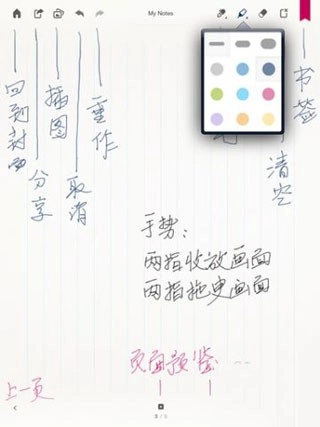 My Notes
回到封面
分享
插图
取消
重作
书签
清空
手势:
两指收放画面
两指拖曳画面
页面预鉴 ...
上一页